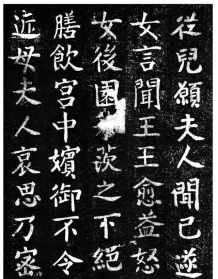 從兒願夫人聞已遂
女言聞王王愈益怒
女後園茨之下絕
膳飲宮中嬪御不令
近母夫人哀思乃密